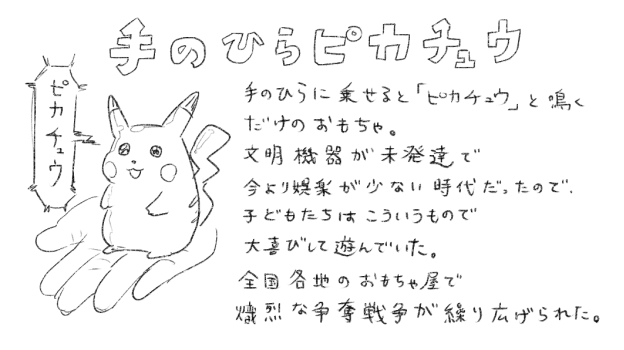 手のひらピカチュウ
ピカチュウ
手のひらに乗せると「ピカチュウ」と鳴く
だけのおもちゃ。
文明機器が未発達で
今より娯楽が少ない時代だったので、
子どもたちはこういうもので
大喜びして遊んでいた。
全国各地のおもちゃ屋で
熾烈な争奪戦争が繰り広げられた。